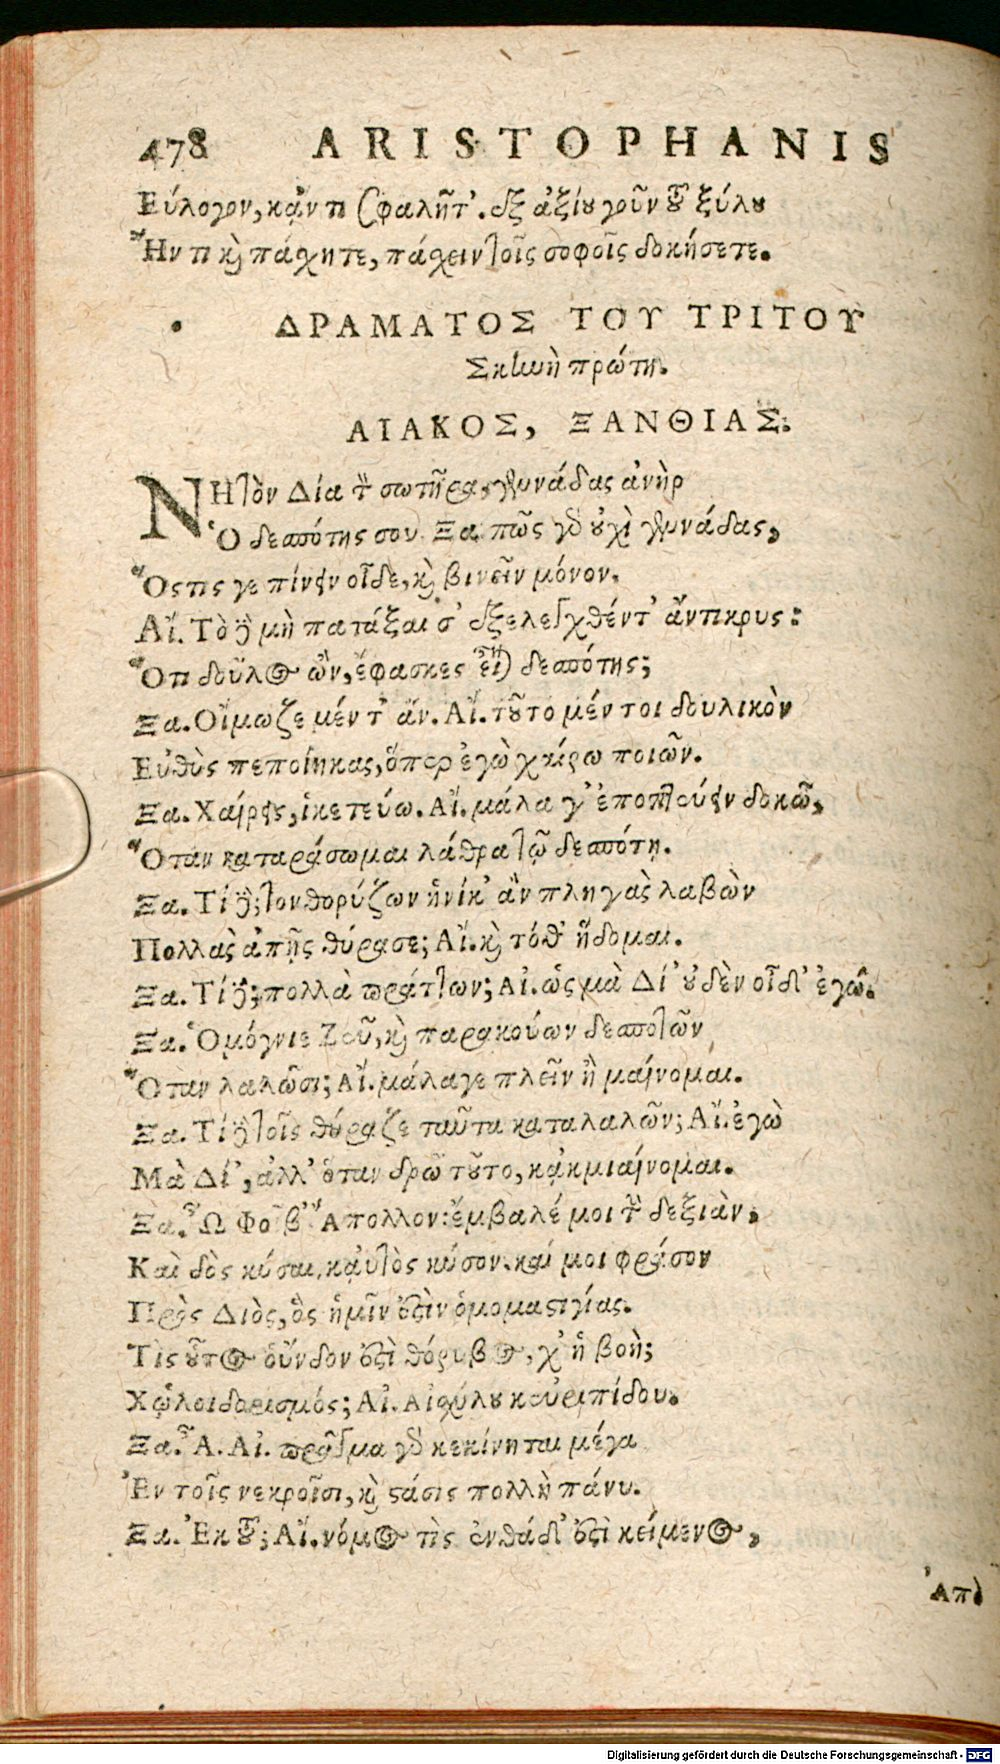 478 ARISTOPHANIS
Εὔλογον, κᾄν τι σφαλῆτ'. ἐξ ἀξίου γοῦν τοῦ ξύλου
Ἤν τι καὶ πάσχητε, πάσχειν τοῖς σοφοῖς δοκήσετε.
ΔΡΑΜΑΤΟΣ ΤΟΥ ΤΡΙΤΟΥ
Σκηνὴ πρώτη.
ΑΙΑΚΟΣ, ΞΑΝΘΙΑΣ.
ΝΗ τὸν Δία τὸν σωτῆρα, γεννάδας ἀνὴρ
Ὁ δεσπότης σου. Ξα. πῶς γὸ οὐχὶ γεννάδας,
Ὅςτις γε πίνειν οἶδε, καὶ βινεῖν μόνον.
Αἴ. Τὸ δὲ μὴ πατάξαι σ' ἐξελεγχθέντ' ἄντικρυς:
Ὅτι δοῦλος ὢν, ἔφασκες εἶναι δεσπότης;
Ξα. Οἴμωζε μέν τ' ἄν. Αἴ. τοῦτο μέν τοι δουλικὸν
Εὐθὺς πεποίηκας, ὅπερ ἐγὼ χαίρω ποιῶν.
Ξα. Χαίρεις, ἱκετεύω. Αἴ. μάλα γ' ἐποπτεύειν δοκῶ,
Ὅταν καταράσωμαι λάθρα τῷ δεσπότῃ.
Ξα. Τί δὲ; τονθορύζων ἡνίκ' ἂν πληγὰς λαβὼν
Πολλὰς ἀπῇς θύρασε; Αἴ. καὶ τόθ' ἥδομαι.
Ξα. Τί δὲ; πολλὰ πράττων; Αἰ. ὡς μὰ Δί' οὐδὲν οἶδ' ἐγώ.
Ξα. Ὁμόγνιε Ζεῦ, καὶ παρακούων δεσποτῶν
Ὅταν λαλῶσι; Αἴ. μάλαγε πλεῖν ἢ μαίνομαι.
Ξα. Τί δὲ τοῖς θύραζε ταῦτα καταλαλῶν; Αἴ. ἐγὼ
Μὰ Δί', ἀλλ' ὅταν δρῶ τοῦτο, κᾀκμιαίνομαι.
Ξα. Ὦ Φοῖβ' Ἄπολλον: ἔμβαλέ μοι τὴν δεξιὰν,
Καὶ δὸς κύσαι, καὐτὸς κύσον. καί μοι φράσον
Πρὸς Διὸς, ὃς ἡμῖν ἐστὶν ὁμομαστιγίας.
Τίς οὗτος οὔνδον ἐστὶ θόρυβος, χ' ἡ βοή;
Χὠλοιδορισμός; Αἰ. Αἰσχύλου κεὐριπίδου.
Ξα. Ἆ. Αἰ. πρᾶγμα γὸ κεκίνηται μέγα
Ἐν τοῖς νεκροῖσι, καὶ στάσις πολλὴ πάνυ.
Ξα. Ἐκ τοῦ; Αἴ. νόμος τὶς ἐνθάδ' ἐστὶ κείμενος,
Ἀπὸ
Digitalisierung gefördert durch die Deutsche Forschungsgemeinschaft - DFG